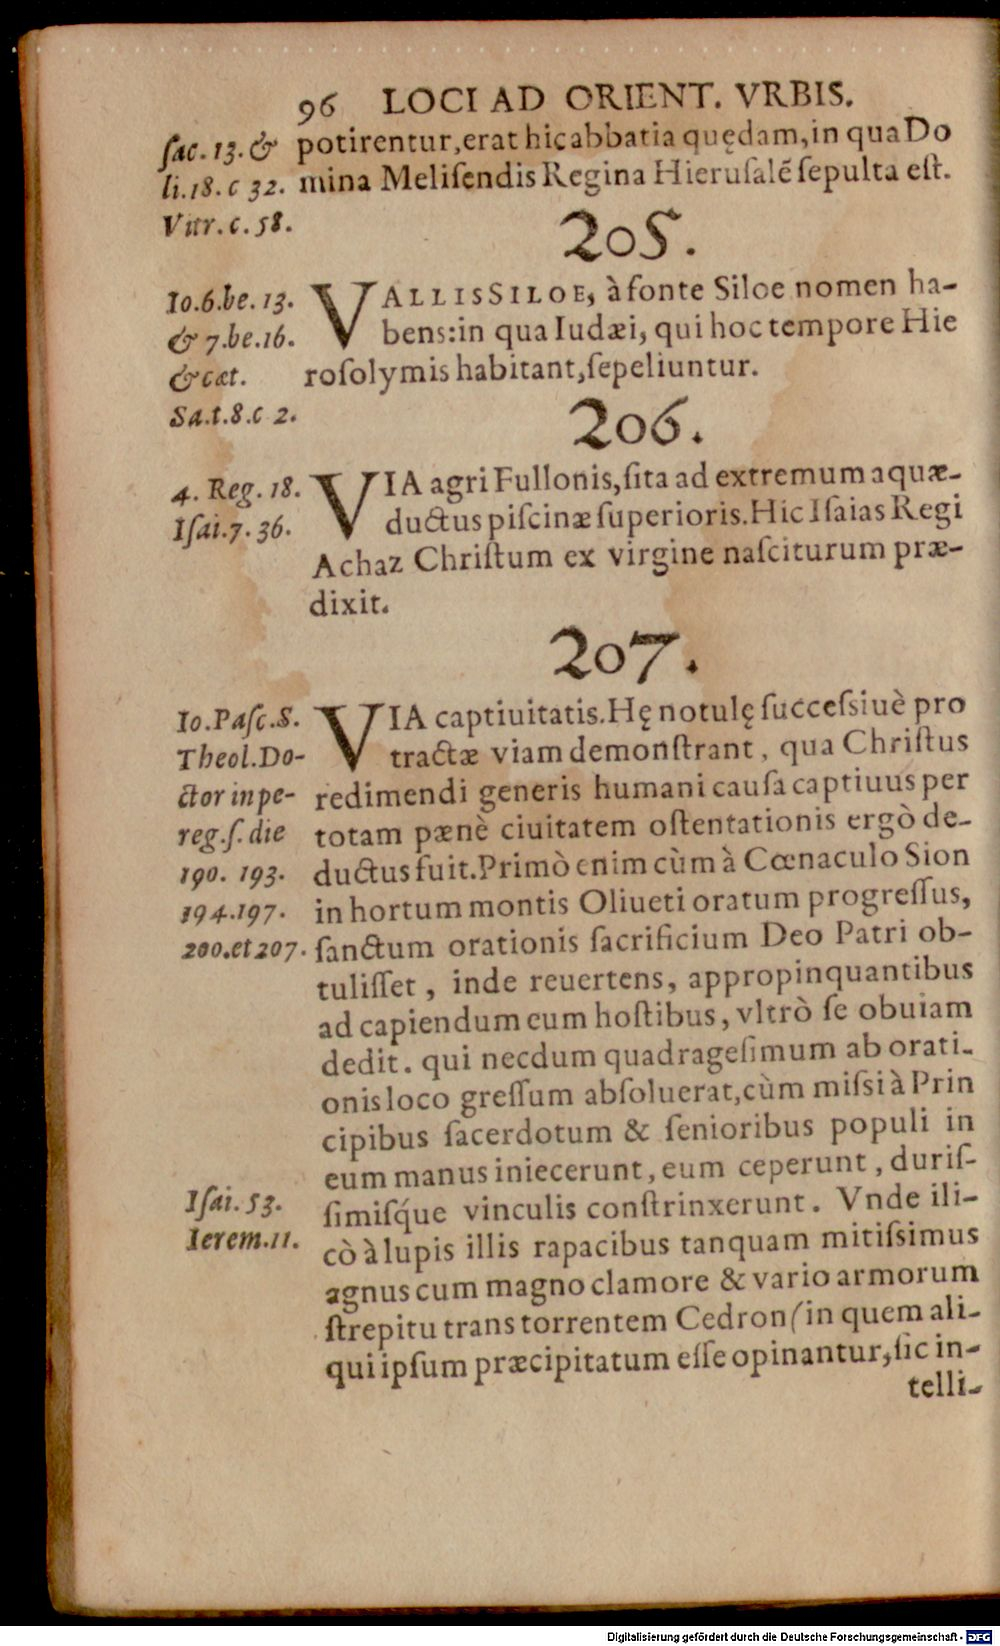 96 LOCI AD ORIENT. VRBIS.
ſac. 13. &
li. 18. c 32.
Vitr. c. 58.
potirentur, erat hic abbatia quędam, in qua Do
mina Meliſendis Regina Hieruſalẽ ſepulta eſt.
205.
Io. 6. be. 13.
& 7. be. 16.
& cæt.
Sa. t. 8. c 2.
VALLIS SILOE, à fonte Siloe nomen ha-
bens: in qua Iudæi, qui hoc tempore Hie
roſolymis habitant, ſepeliuntur.
206.
4. Reg. 18.
Iſai. 7. 36.
VIA agri Fullonis, ſita ad extremum aquæ-
ductus piſcinæ ſuperioris. Hic Iſaias Regi
Achaz Chriſtum ex virgine naſciturum præ-
dixit.
207.
Io. Paſc. S.
Theol. Do-
ctor in pe-
reg. ſ. die
190. 193.
194. 197.
200. et 207.
VIA captiuitatis. Hę notulę ſucceſsiuè pro
tractæ viam demonſtrant, qua Chriſtus
redimendi generis humani cauſa captiuus per
totam pænè ciuitatem oſtentationis ergò de-
ductus fuit. Primò enim cùm à Cœnaculo Sion
in hortum montis Oliueti oratum progreſſus,
ſanctum orationis ſacrificium Deo Patri ob-
tuliſſet, inde reuertens, appropinquantibus
ad capiendum eum hoſtibus, vltrò ſe obuiam
dedit. qui necdum quadrageſimum ab orati-
onis loco greſſum abſoluerat, cùm miſsi à Prin
cipibus ſacerdotum & ſenioribus populi in
eum manus iniecerunt, eum ceperunt, duriſ-
ſimiſq́ue vinculis conſtrinxerunt. Vnde ili-
Iſai. 53.
Ierem. 11.
cò à lupis illis rapacibus tanquam mitiſsimus
agnus cum magno clamore & vario armorum
ſtrepitu trans torrentem Cedron (in quem ali-
qui ipſum præcipitatum eſſe opinantur, ſic in-
telli-
Digitalisierung gefördert durch die Deutsche Forschungsgemeinschaft - DFG